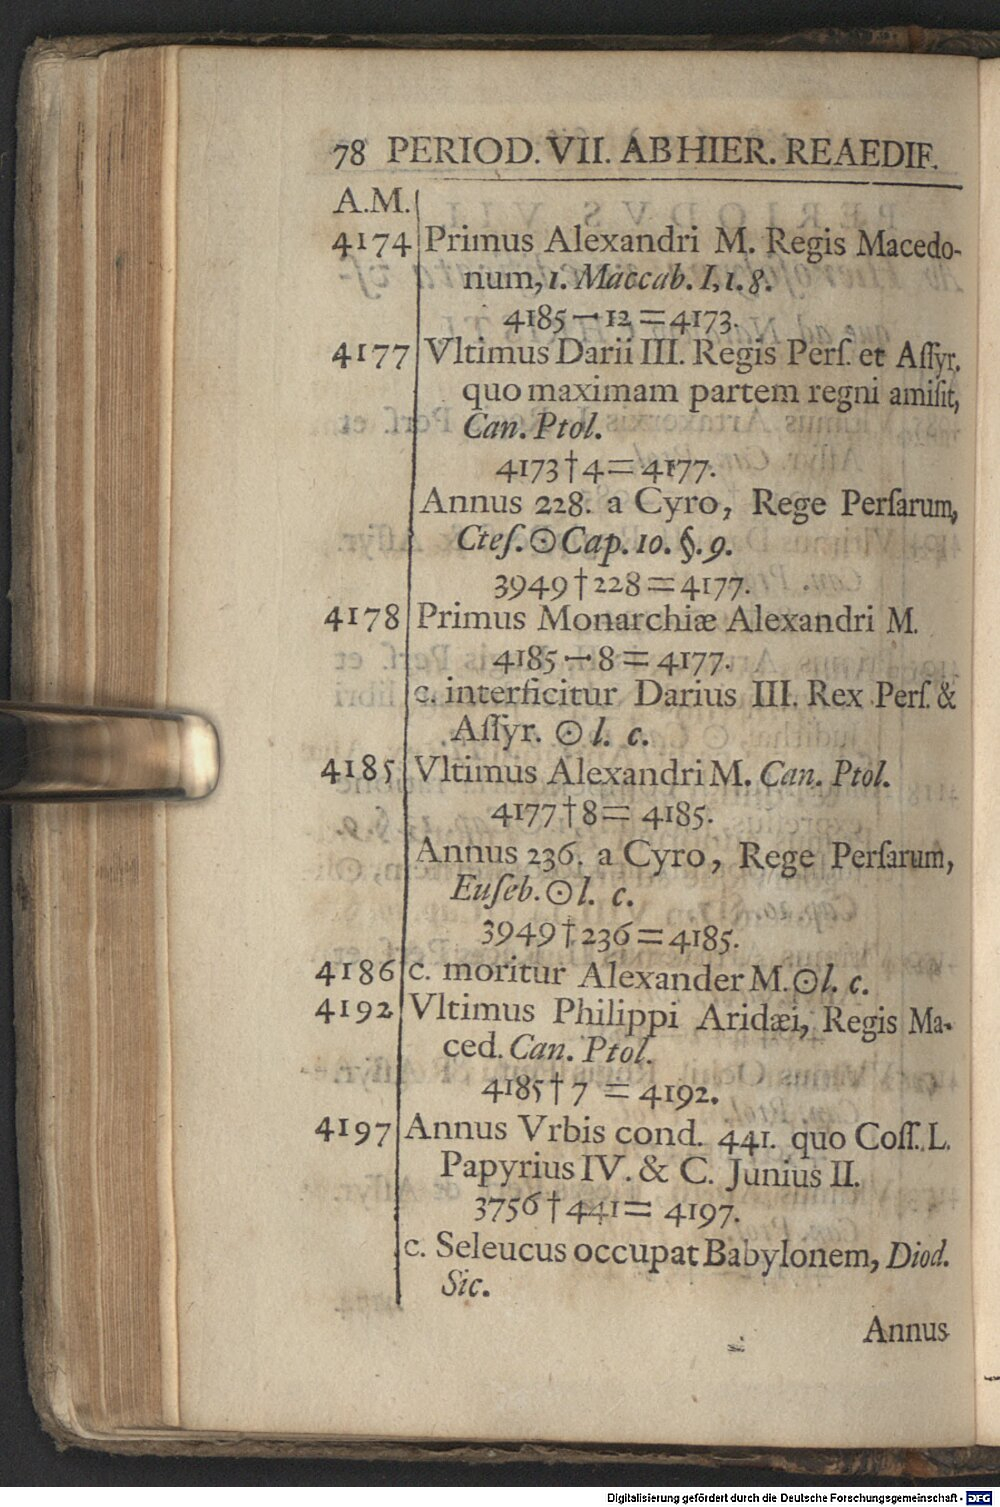 78 PERIOD. VII. AB HIER. REAEDIF.
A.M.
4174 Primus Alexandri M. Regis Macedo-
num, 1. Maccab. I, 1. 8.
4185 – 12 = 4173.
4177 Vltimus Darii III. Regis Perſ. et Aſſyr.
quo maximam partem regni amiſit,
Can. Ptol.
4173 † 4 = 4177.
Annus 228. a Cyro, Rege Perſarum,
Cteſ. ☉ Cap. 10. §. 9.
3949 † 228 = 4177.
4178 Primus Monarchiæ Alexandri M.
4185 – 8 = 4177.
c. interficitur Darius III. Rex Perſ. &
Aſſyr. ☉ l. c.
4185 Vltimus Alexandri M. Can. Ptol.
4177 † 8 = 4185.
Annus 236. a Cyro, Rege Perſarum,
Euſeb. ☉ l. c.
3949 † 236 = 4185.
4186 c. moritur Alexander M. ☉ l. c.
4192 Vltimus Philippi Aridæi, Regis Ma-
ced. Can. Ptol.
4185 † 7 = 4192.
4197 Annus Vrbis cond. 441. quo Coſſ. L.
Papyrius IV. & C. Junius II.
3756 † 441 = 4197.
c. Seleucus occupat Babylonem, Diod.
Sic.
Annus
Digitalisierung gefördert durch die Deutsche Forschungsgemeinschaft - DFG